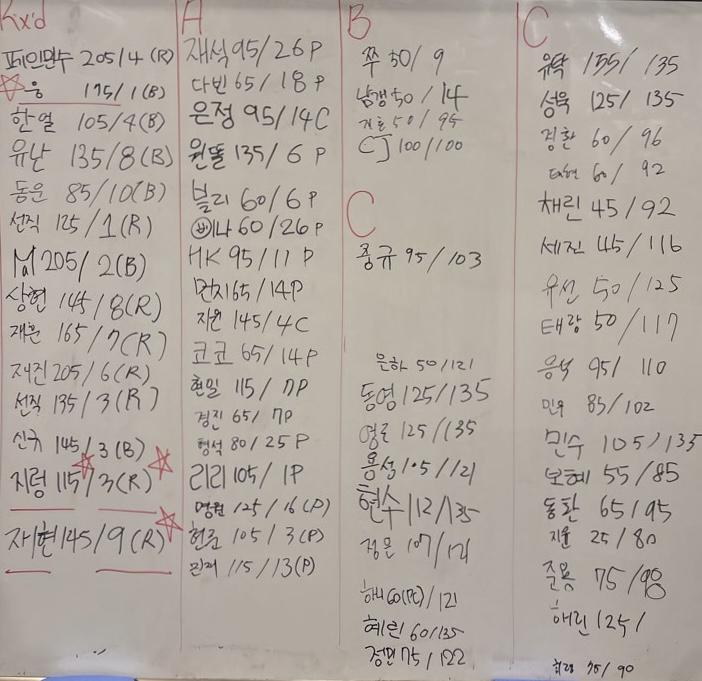 Rx'd
페인민수 205/4 (R)
웅 175/1 (B)
한열 105/4(B)
유난 135/8(B)
동운 85/10(B)
선직 125/1(R)
M 205/2(B)
상현 145/8(R)
재훈 165/7(R)
재진 205/6(R)
선직 135/3(R)
신규 145/3(B)
지렁 115/3(R)
재현 145/9(R)
A
재식 95/26 P
다빈 65/18 P
은정 95/14C
원똘 135/6 P
블리 60/6 P
나 60/26 P
HK 95/11 P
먼지 65/14P
지윤 145/4C
코코 65/14P
현일 115/7P
경진 65/7P
형석 80/25 P
리리 105/1P
명원 125/16(P)
헌준 105/3(P)
민재 115/13(P)
B
쭈 50/9
남갱 50/14
50/95
CJ 100/100
C
종규 95/103
은하 50/121
동영 125/135
영로 125/135
용섭 105/121
현수 112/135
정은 107/121
해니 60(PC)/121
혜린 60/135
정민 75/122
C
유탁 155/135
성욱 125/135
정환 60/96
태현 60/92
채린 45/92
세진 45/116
유선 50/125
태랑 50/117
응석 95/110
민우 85/102
민수 105/135
보혜 55/85
동환 65/95
지율 25/80
준용 75/98
해린 125/
75/90